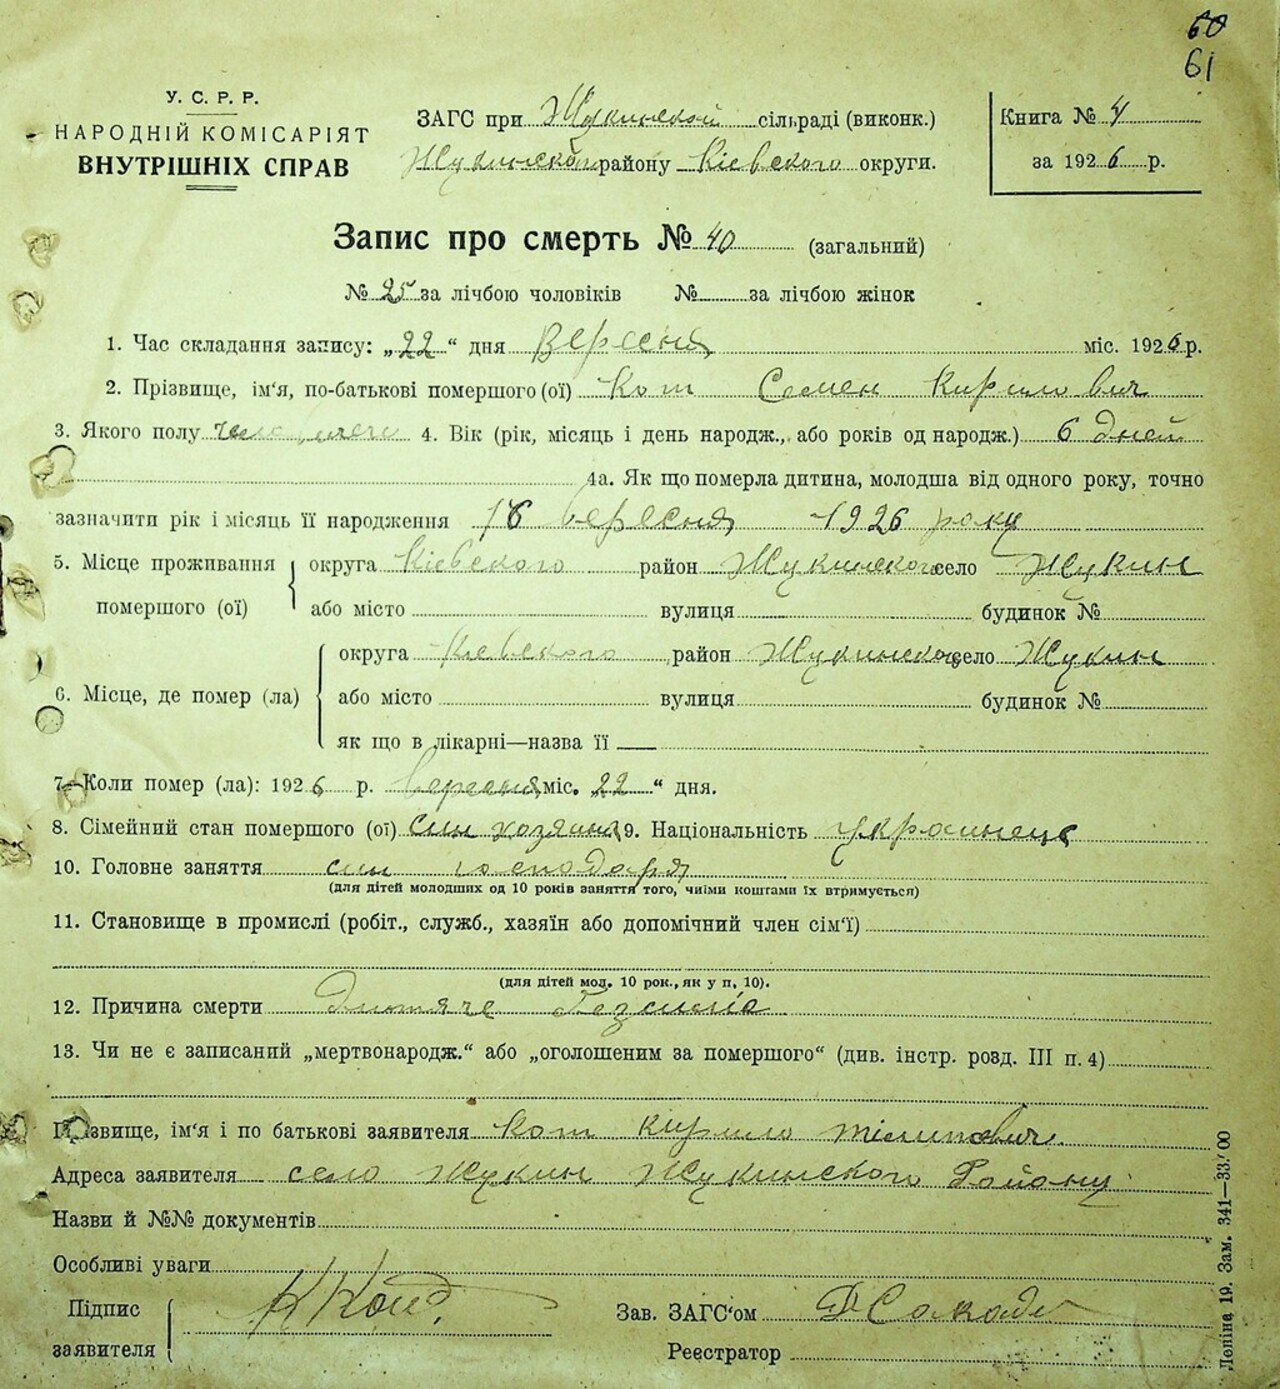 60
61
У. С. Р. Р.
НАРОДНІЙ КОМІСАРІЯТ
ВНУТРІШНІХ СПРАВ
ЗАГС при Жукинской сільраді (виконк.)
Жукинского району Кіевского округи.
Книга № 4
за 1926 р.
Запис про смерть № 40 (загальний)
№ 25 за лічбою чоловіків № за лічбою жінок
1. Час складання запису: „22“ дня Вересня міс. 1926 р.
2. Прізвище, ім'я, по-батькові помершого (ої) Кот Семен Кирилович
3. Якого полу 4. Вік (рік, місяць і день народж., або років од народж.) 6 дней
4а. Як що померла дитина, молодша від одного року, точно
зазначити рік і місяць її народження 16 вересня 1926 року
5. Місце проживання помершого (ої) округа Кіевского район Жукинского село Жукин
або місто вулиця будинок №
6. Місце, де помер (ла) округа Кіевского район Жукинского село Жукин
або місто вулиця будинок №
як що в лікарні—назва її
7. Коли помер (ла): 1926 р. вересня міс. 22“ дня.
8. Сімейний стан помершого (ої) син хозяина 9. Національність украинець
10. Головне заняття син господаря
(для дітей молодших од 10 років заняття того, чиїми коштами їх втримується)
11. Становище в промислі (робіт., служб., хазяїн або допомічний член сім'ї)
(для дітей мол. 10 рок., як у п. 10).
12. Причина смерти
13. Чи не є записаний „мертвонародж.“ або „оголошеним за помершого“ (див. інстр. розд. III п. 4)
Прізвище, ім'я і по батькові заявителя Кот Кирило
Адреса заявителя село Жукин Жукинского Району
Назви й №№ документів
Особливі уваги
Підпис заявителя
Зав. ЗАГС'ом
Реєстратор
19. Зам. 341—33.'00